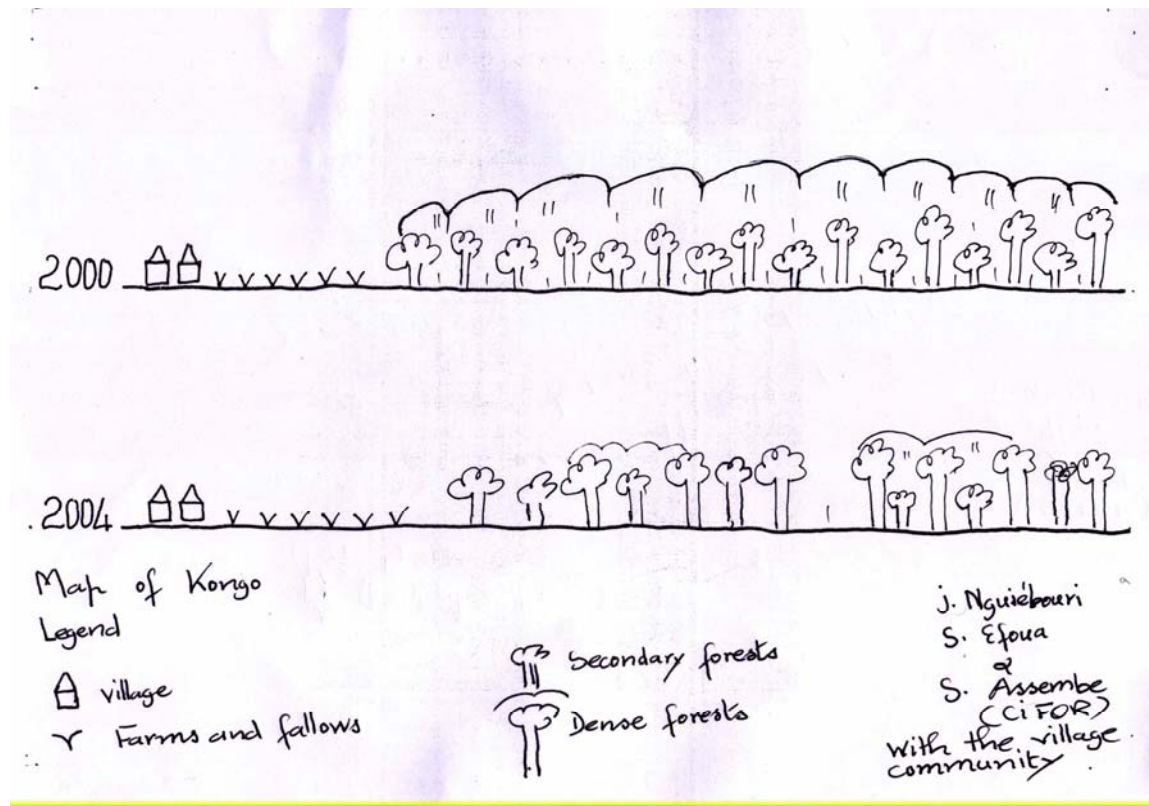 2000
2004
Map of Kongo
Legend
village
Farms and fallows
Secondary forests
Dense forests
J. Nguiébouri
S. Efoua
&
S. Assembe
(CiFOR)
With the village
community